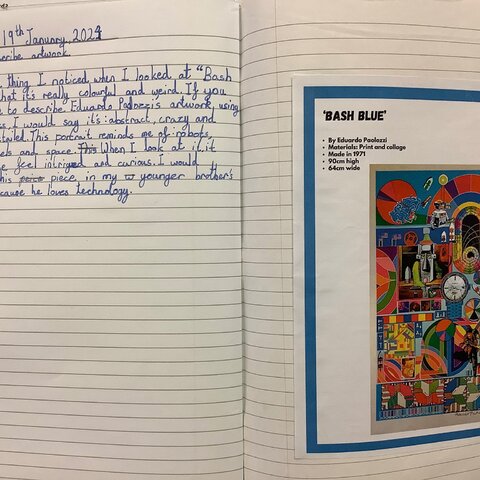 19th January, 2024
cribe artwork.
thing I noticed when I looked at "Bash
hat it's really colourful and weird. If you
e to describe Eduardo Paolozzi's artwork, using
s, I would say it's: abstract, crazy and
tailed. This portrait reminds me of: robots,
els and space. This When I look at it, it
e feel intrigued and curious. I would
his piece in my younger brother's
ecause he loves technology.
'BASH BLUE'
• By Eduardo Paolozzi
• Materials: Print and collage
• Made in 1971
• 90cm high
• 64cm wide